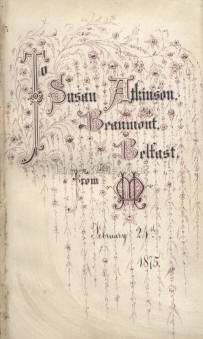 To
Susan Atkinson.
Beaumont.
Belfast.
From M
February 24th
1875.